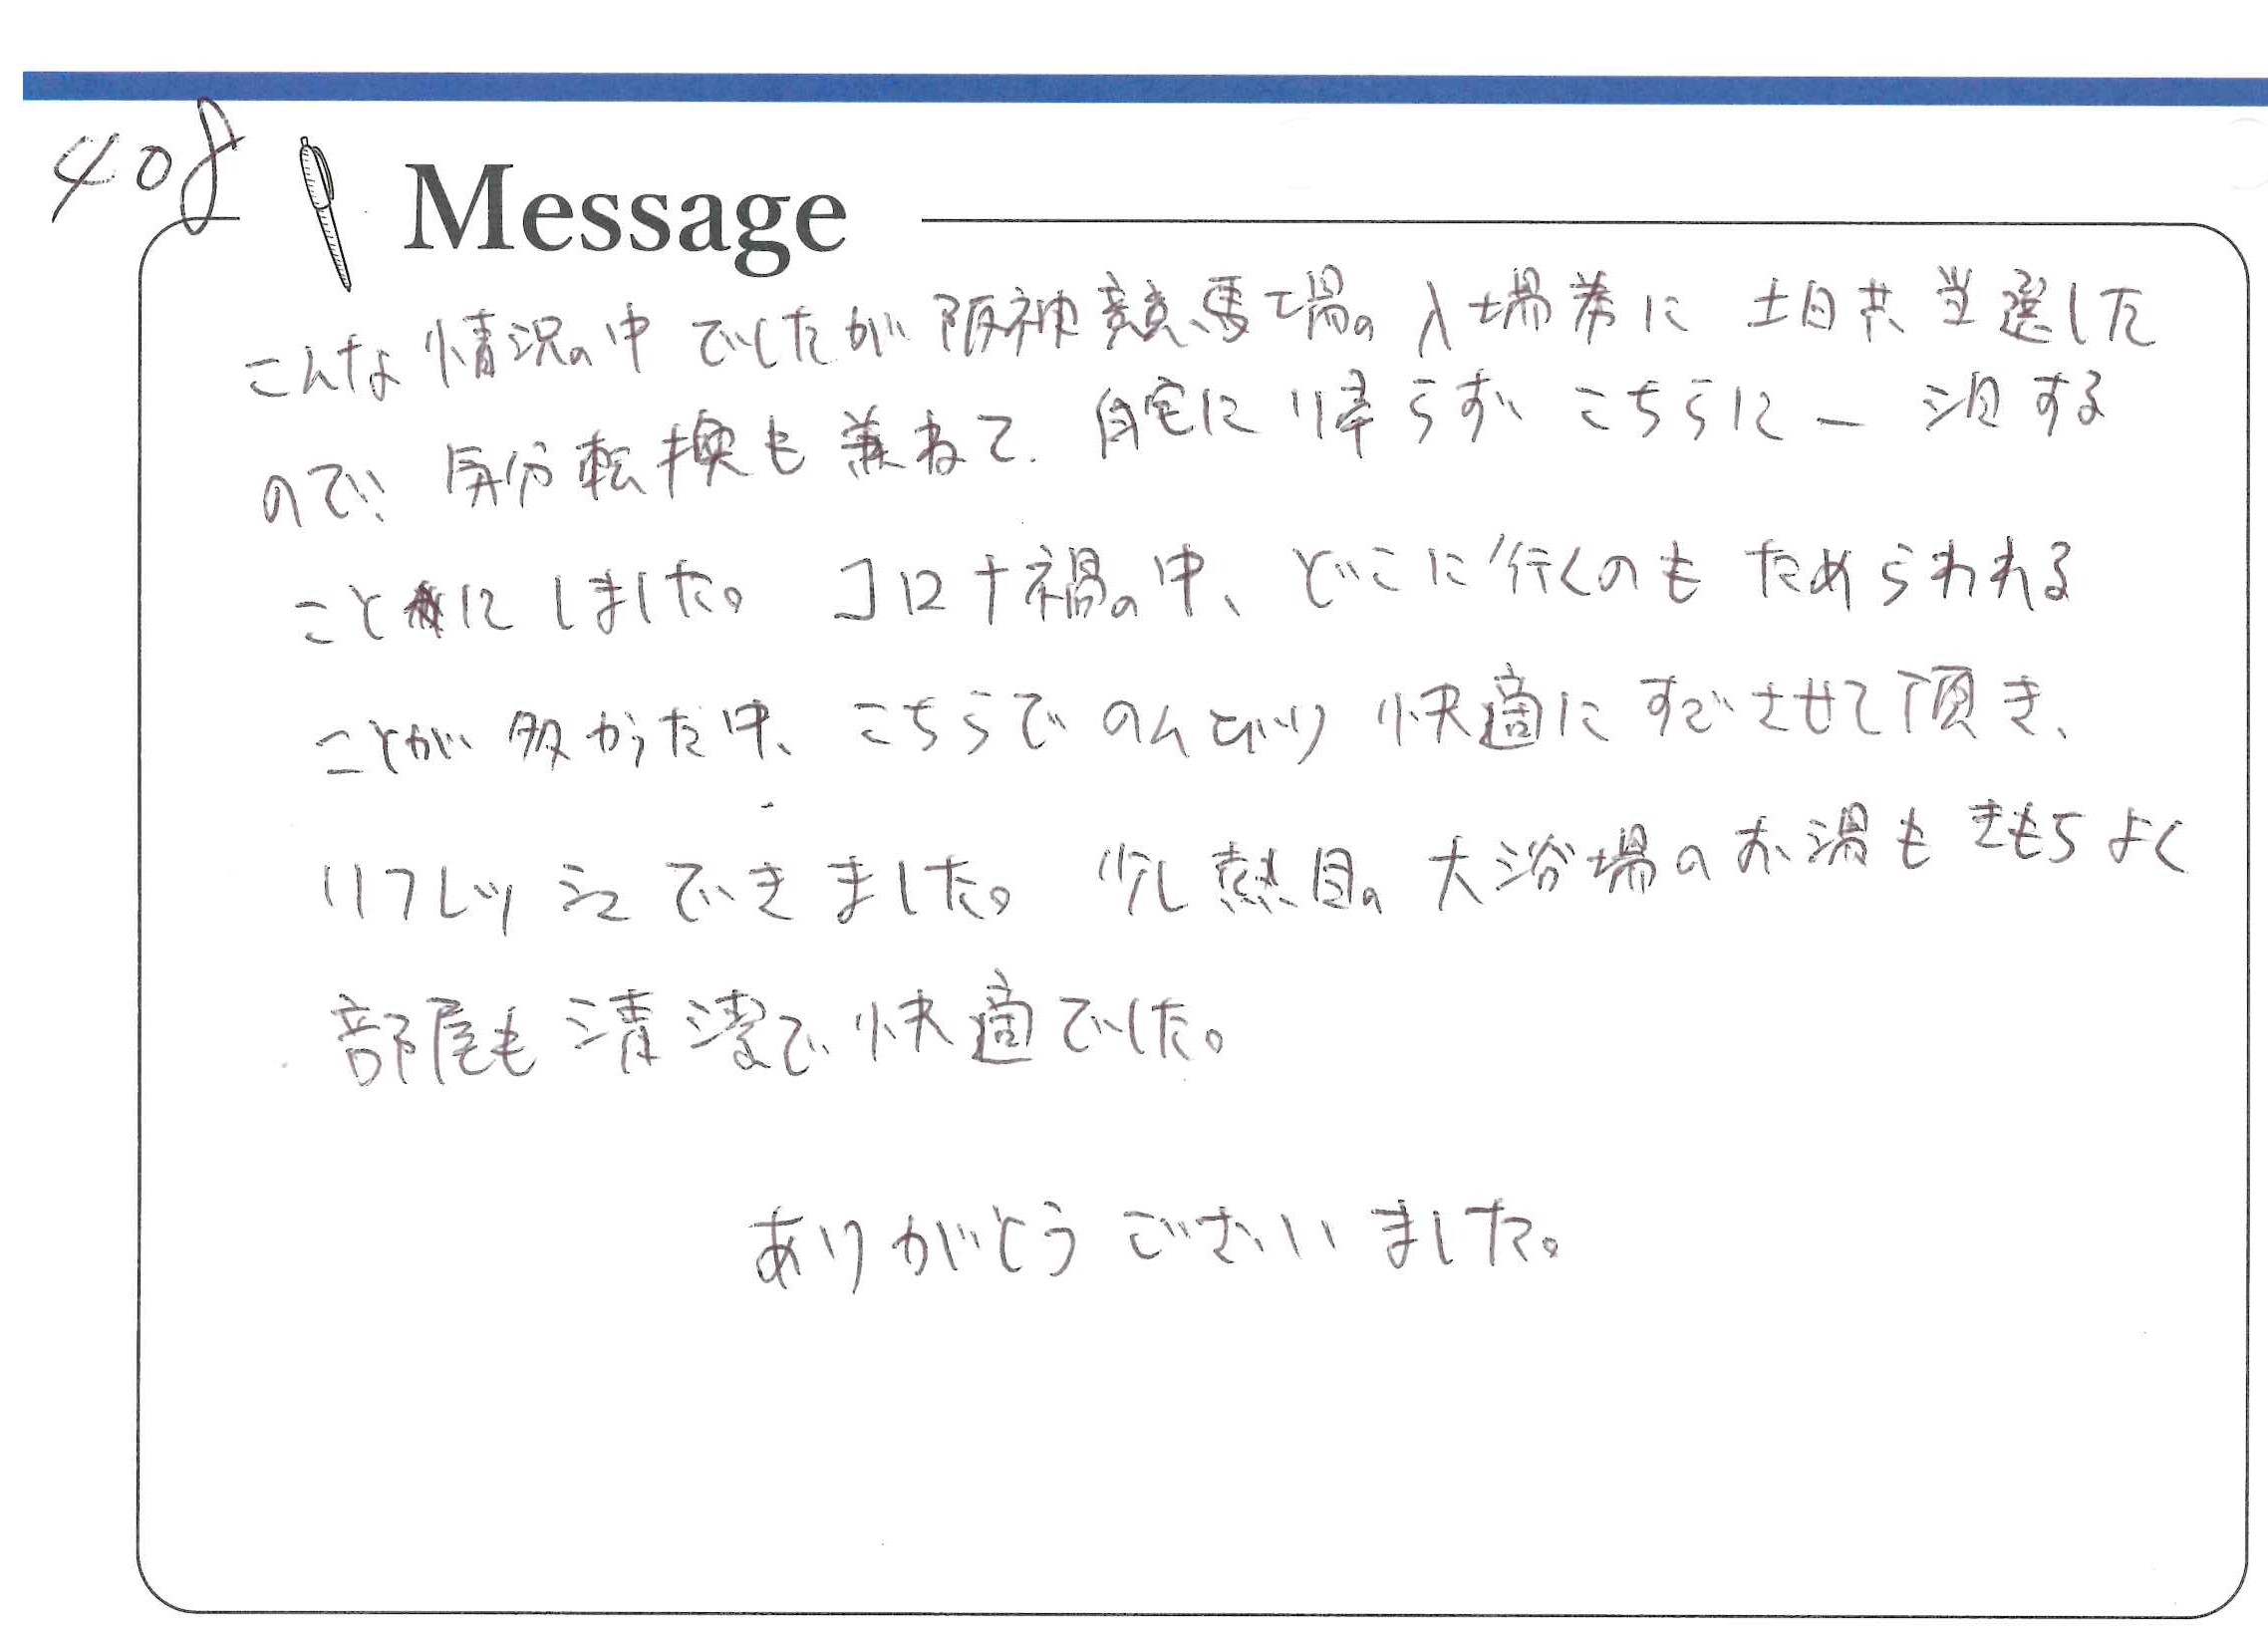 408
Message
こんな情況の中でしたが阪神競馬場の入場券に土日共当選した
ので、気分転換も兼ねて自宅に帰らずこちらに一泊する
ことにしました。コロナ禍の中、どこに行くのもためらわれる
ことが多かった中、こちらでのんびり快適にすごさせて頂き、
リフレッシュできました。少し熱目の大浴場のお湯もきもちよく
部屋も清潔で快適でした。
ありがとうございました。